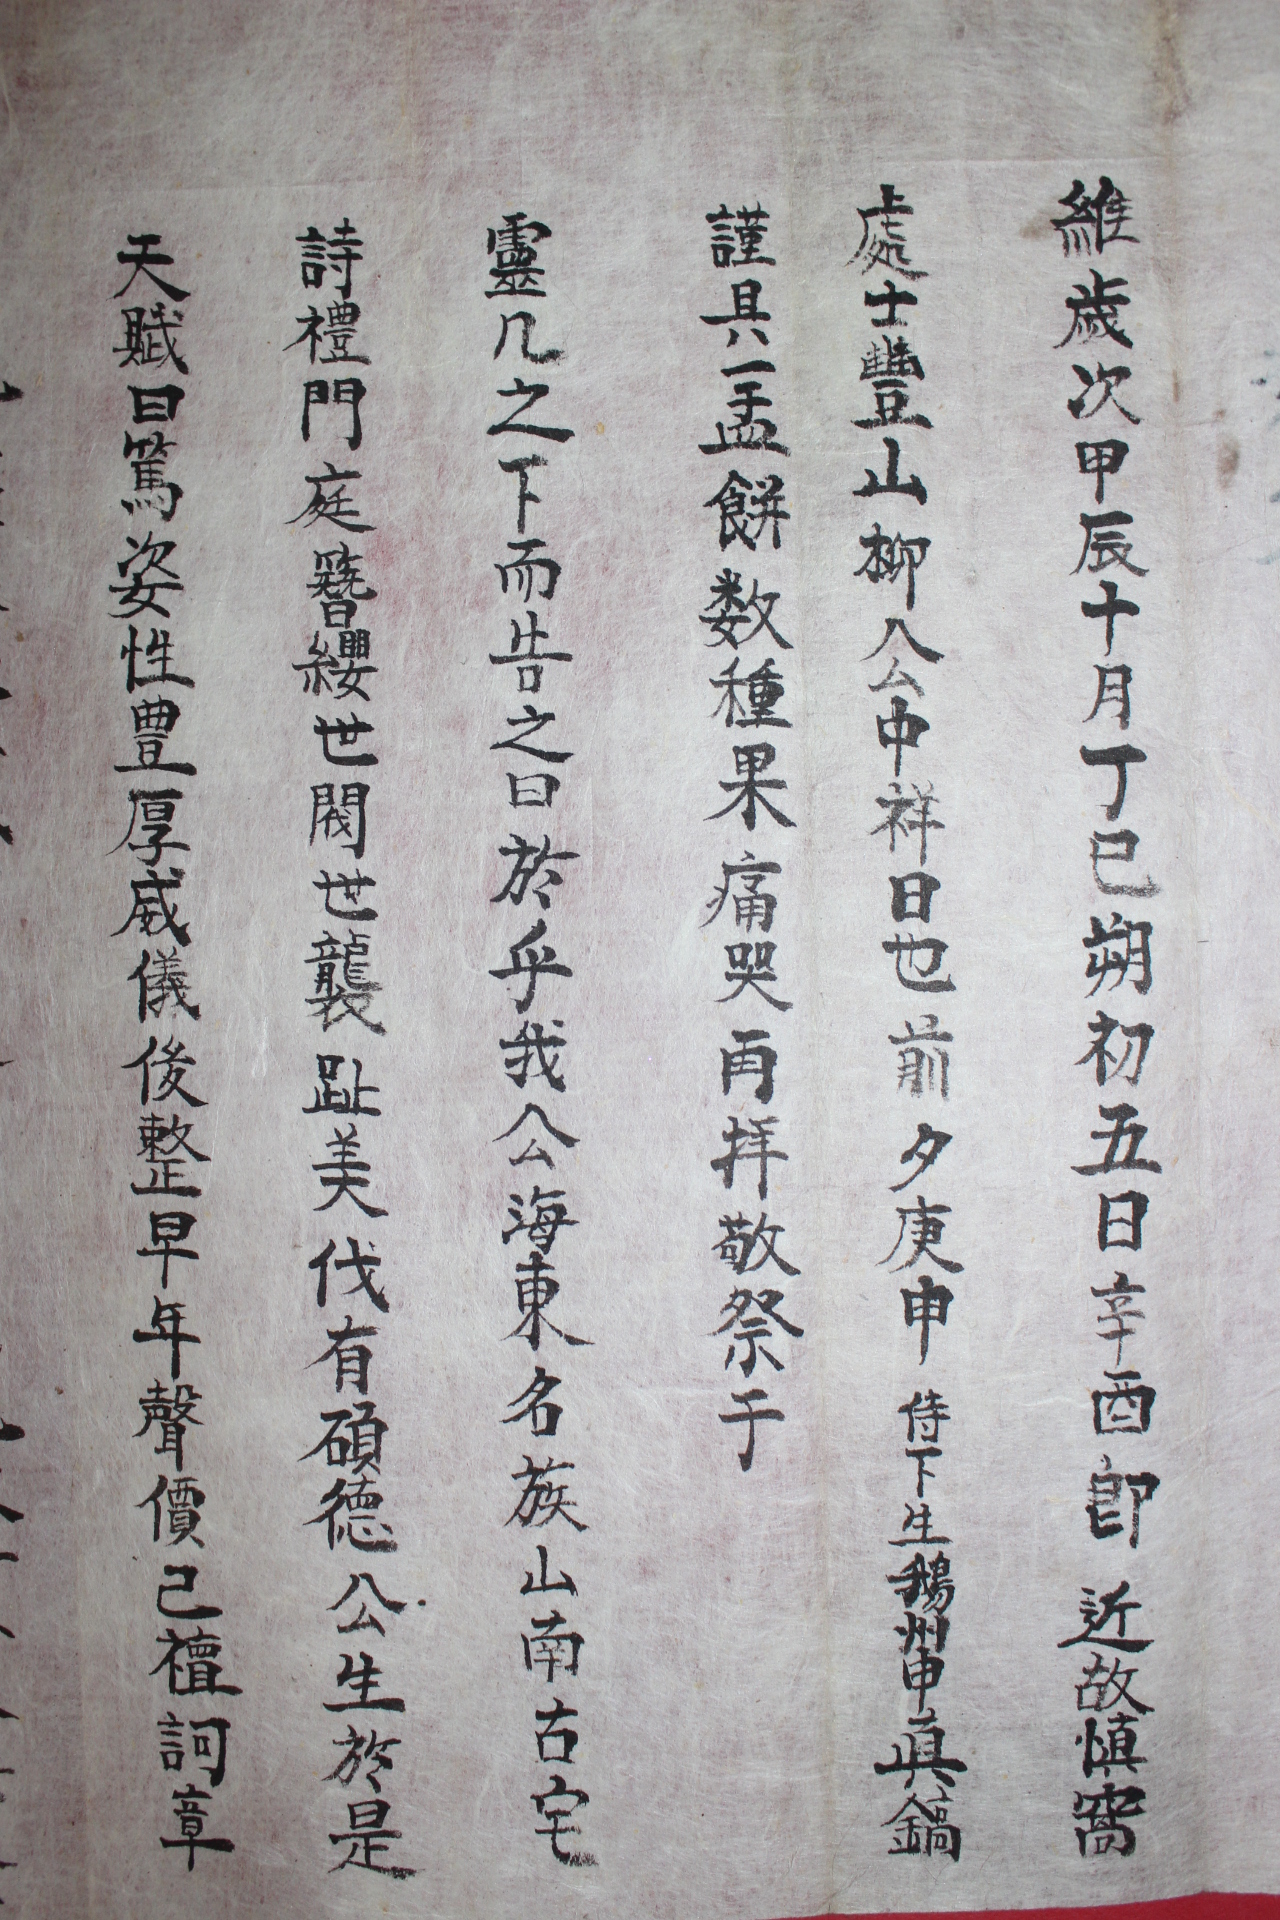 維歲次甲辰十月丁巳朔初五日辛酉卽近故愼窩
處士豐山柳公中祥日也前夕庚申侍下生鵝州申眞鎬
謹具一盂餠数種果痛哭再拜敬祭于
靈几之下而告之曰於乎我公海東名族山南古宅
詩禮門庭簪纓世閥世襲趾美代有碩德公生於是
天賦曰篤姿性豊厚威儀俊整早年聲價已擅詞章